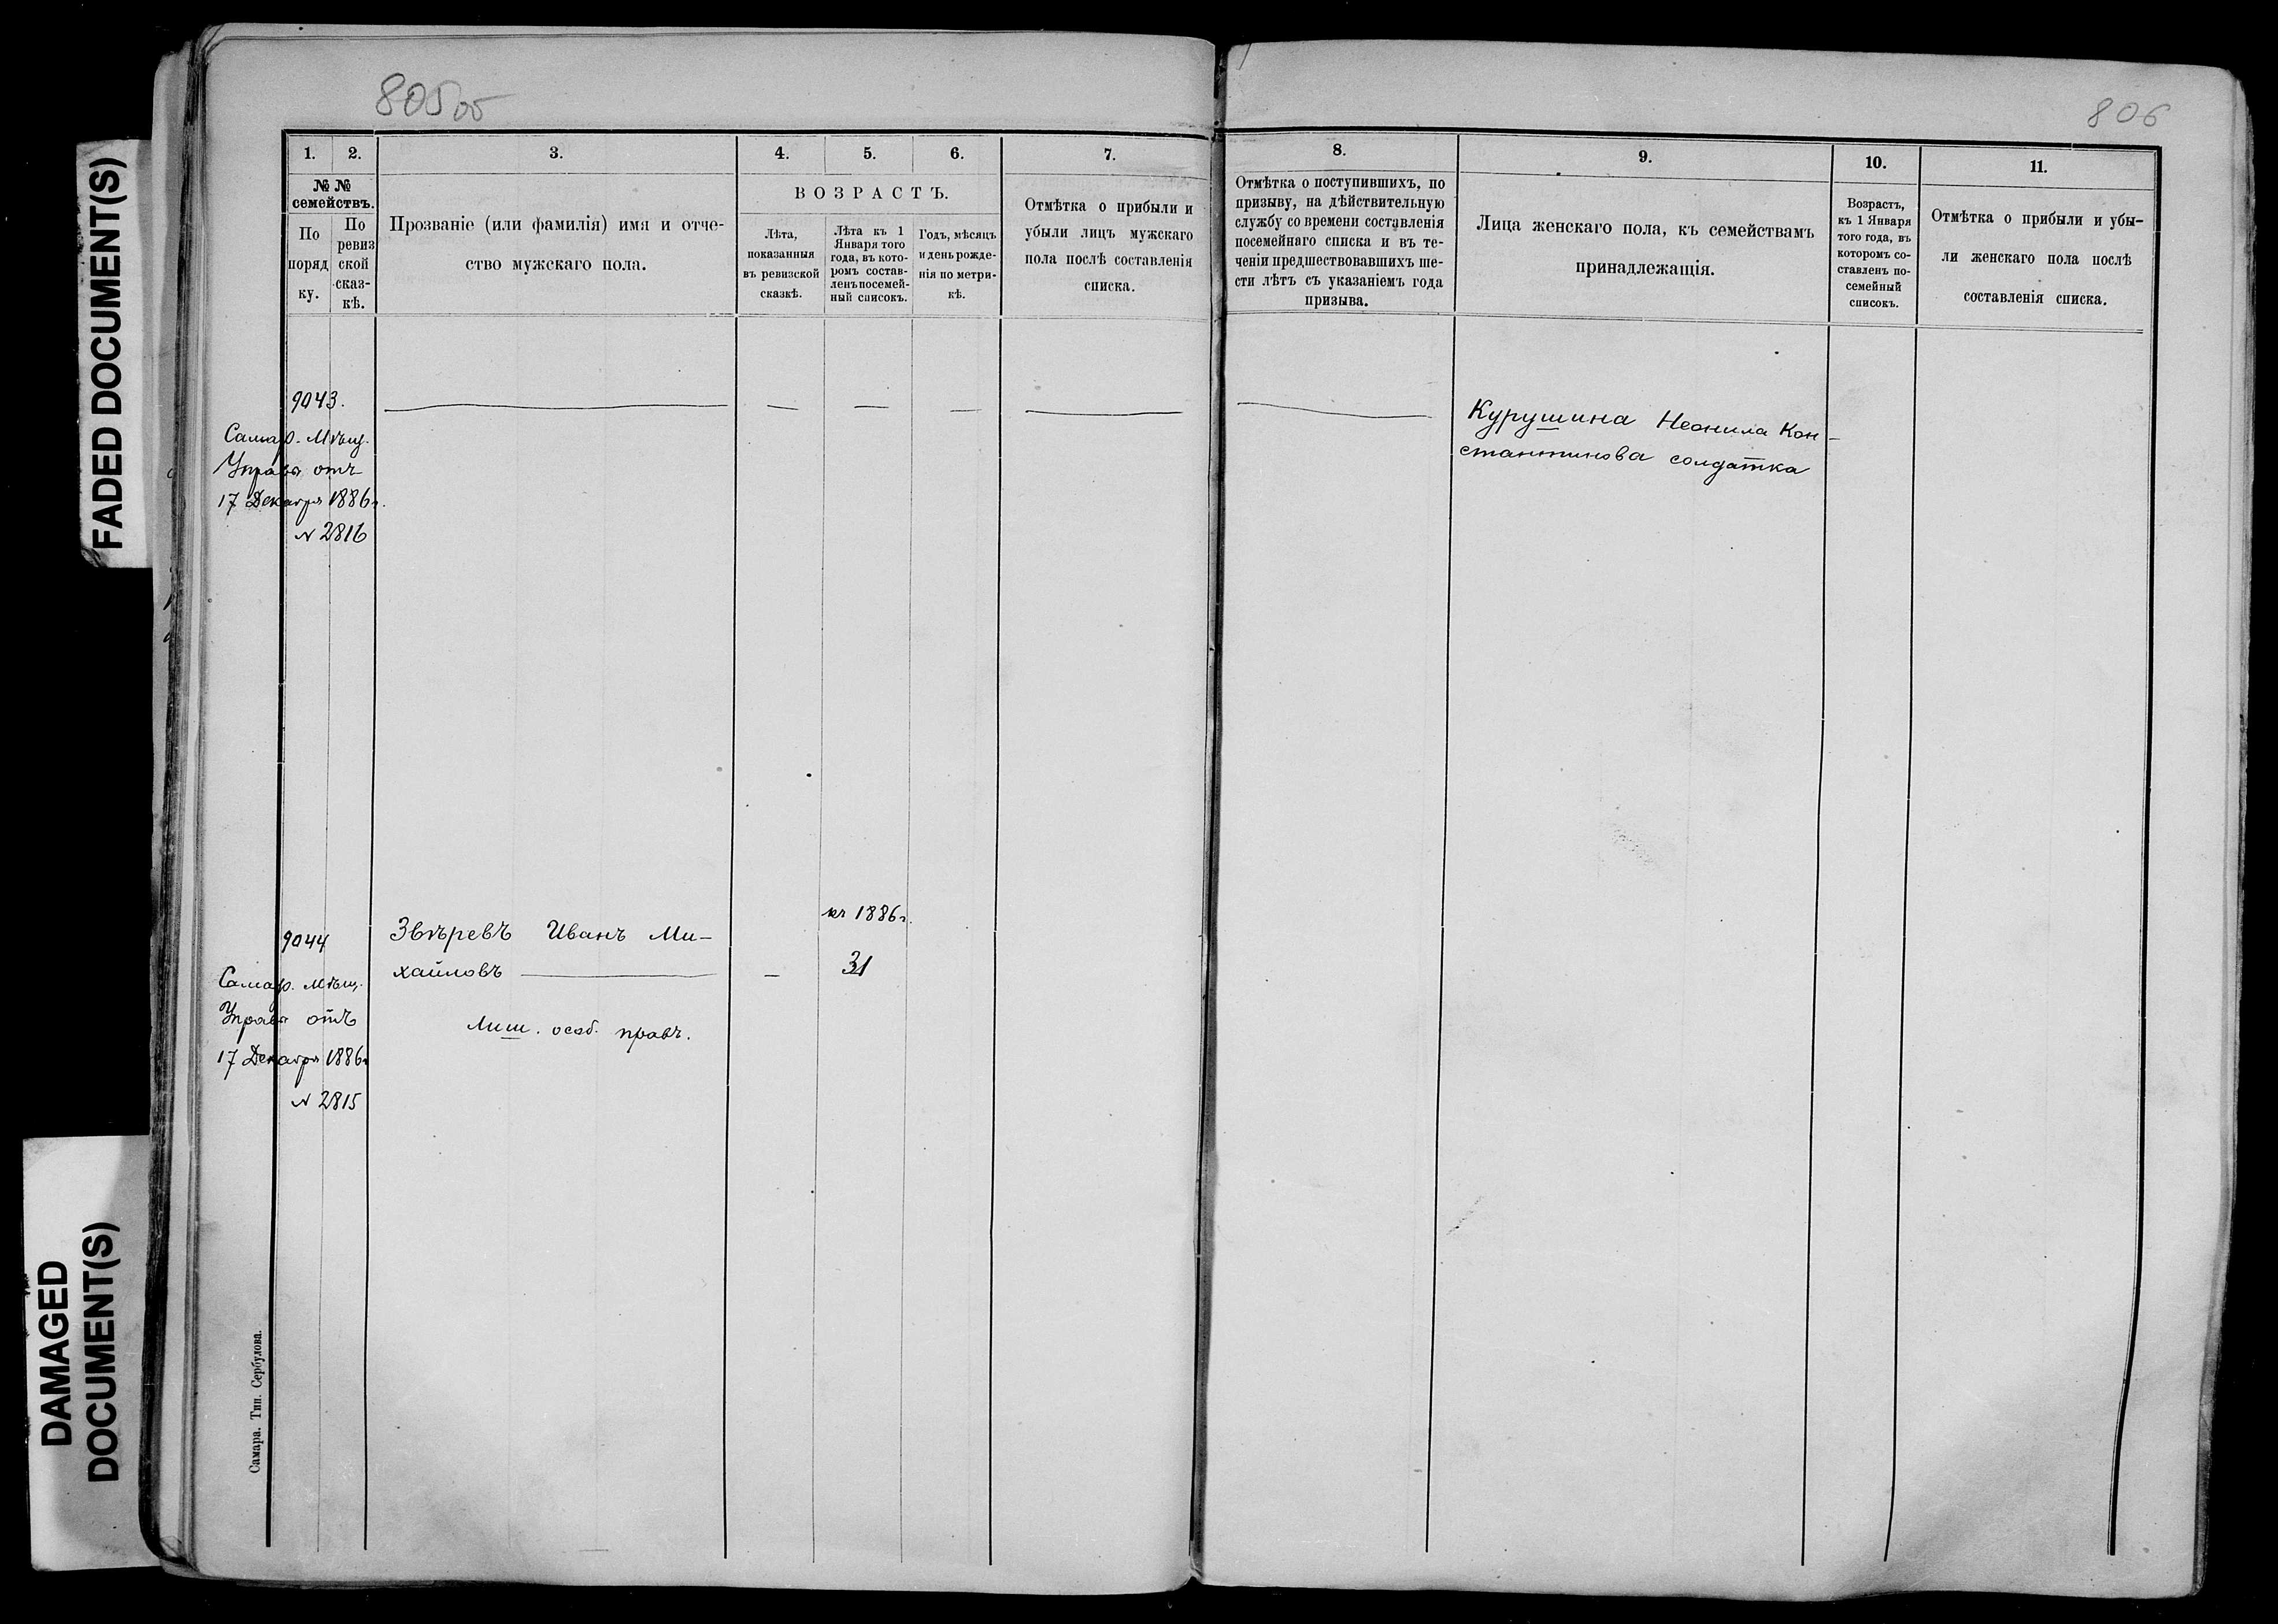 805об
806
1. 2. 3. 4. 5. 6. 7. 8. 9. 10. 11.
№ №
семействъ.
По
поряд
ку.
По
ревиз
ской
сказ-
кѣ.
Прозваніе (или фамилія) имя и отче-
ство мужскаго пола.
ВОЗРАСТЪ.
Лѣта,
показанныя
въ ревизской
сказкѣ.
Лѣта къ 1
Января того
года, въ кото-
ромъ состав-
ленъ посемей-
ный списокъ.
Годъ, мѣсяцъ
и день рожде-
нія по метри-
кѣ.
Отмѣтка о прибыли и
убыли лицъ мужскаго
пола послѣ составленія
списка.
Отмѣтка о поступившихъ, по
призыву, на дѣйствительную
службу со времени составленія
посемейнаго списка и въ те-
ченіи предшествовавшихъ ше-
сти лѣтъ съ указаніемъ года
призыва.
Лица женскаго пола, къ семействамъ
принадлежащія.
Возрастъ,
къ 1 Января
того года, въ
которомъ со-
ставленъ по-
семейный
списокъ.
Отмѣтка о прибыли и убы-
ли женскаго пола послѣ
составленія списка.
9043.
Самар. Мѣщ.
Управы отъ
17 Декабря 1886г.
№ 2816
Курушина Неонила Кон-
стантинова солдатка
9044
Самар. Мѣщ.
Управы отъ
17 Декабря 1886г
№ 2815
Звѣревъ Иванъ Ми-
хайловъ
Лиш. особ. правъ.
къ 1886г.
31
Самара. Тип. Сербулова.
FADED DOCUMENT(S)
DAMAGED
DOCUMENT(S)